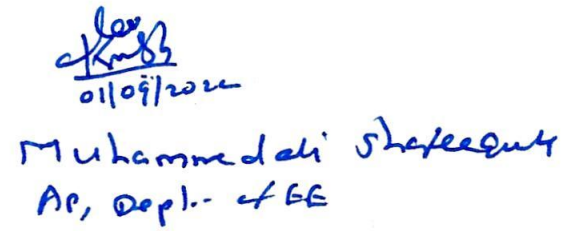 01/09/2022
Muhammedali Shafeeque
AP, Dept. of EE